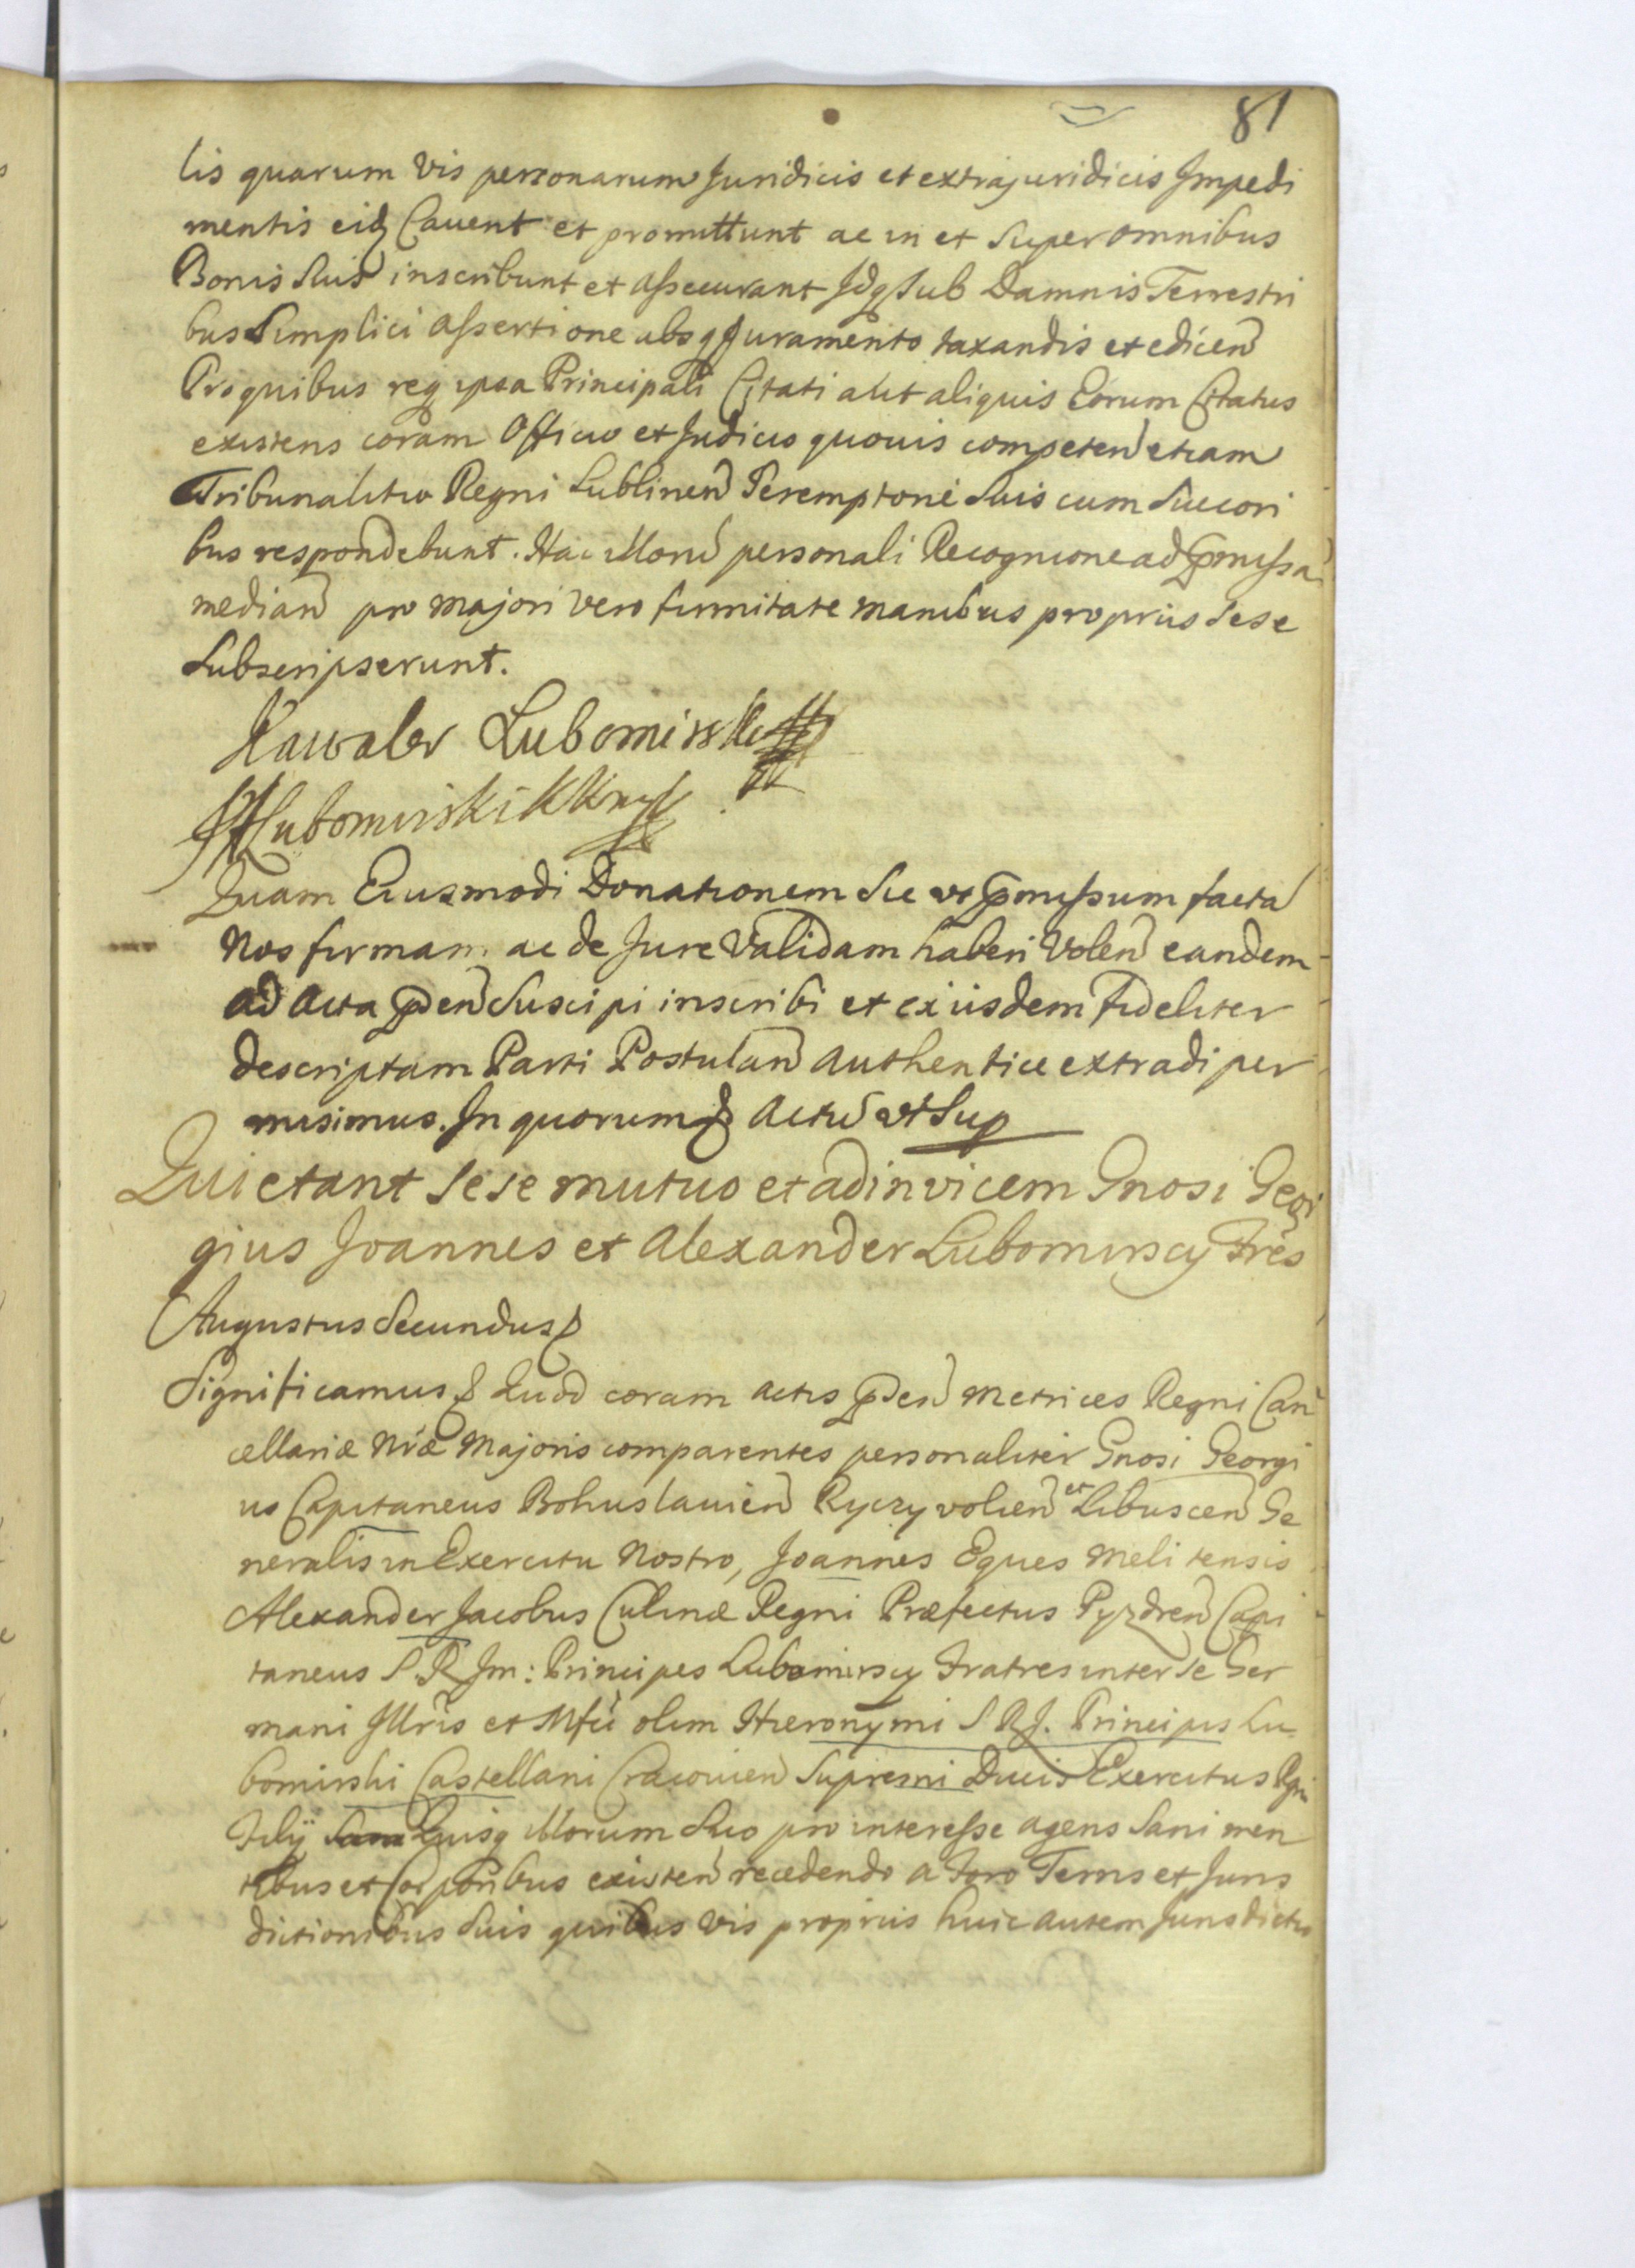 81
lis quarum Vis personarum Juridicis et extrajuridicis Jmpedi
mentis eidq Cauent et promittunt ac in et Super omnibus
Bonis Suis inscribunt et assecurant Jdq Sub Damnis Terrestri
bus Simplici assertione absq Juramento taxandis et edicen
Pro quibus req ipsa Principali Citati aut aliquis Eorum Citatus
existens coram Officio et Judicio quouis competen etiam
Tribunalitio Regni Lublinen Peremptorie Suis cum Succori
bus respondebunt. Hac Illoru personali Recognicione ad pmissa
median pro majori Vero firmitate manibus proprijs Sese
Subscripserunt.
Kawaler Lubomirski
Lubomirski K K
Quam Eiusmodi Donationem Sic vt pmissum facta
Nos firmam ac de Jure Validam haberi Volen eandem
ad acta pden Suscipi inscribi et ex iisdem fideliter
descriptam Parti Postulan authentice extradi per
misimus. Jn quorum actu vt Sup
Quietant Sese mutuo et adinvicem Gnosi Geor
gius Joannes et Alexander Lubomirscy Frēs
Augustus Secundus
Significamus Quod coram actis pden Metrices Regni Can
cellariæ Nræ Majoris comparentes personaliter Gnosi Georgi
us Capitaneus Bohuslauien Ryczyvolien et Libuscen Ge
neralis in Exercitu Nostro, Joannes Eques Melitensis
Alexander Jacobus Culinæ Regni Præfectus Pyzdren Capi
taneus S. R Jm: Principes Lubomirscy Fratres inter Se Ger
mani Jllris et Mfci olim Hieronymi S R J. Principis Lu
bomirski Castellani Cracouien Supremi Ducis Exercitus Rgni
Filij Quisq Illorum Suo pro interesse agens Sani men
tibus et Corporibus existen recedendo a Foro Terris et Juris
dictionibus Suis quibus Vis proprijs huic autem Jurisdictio